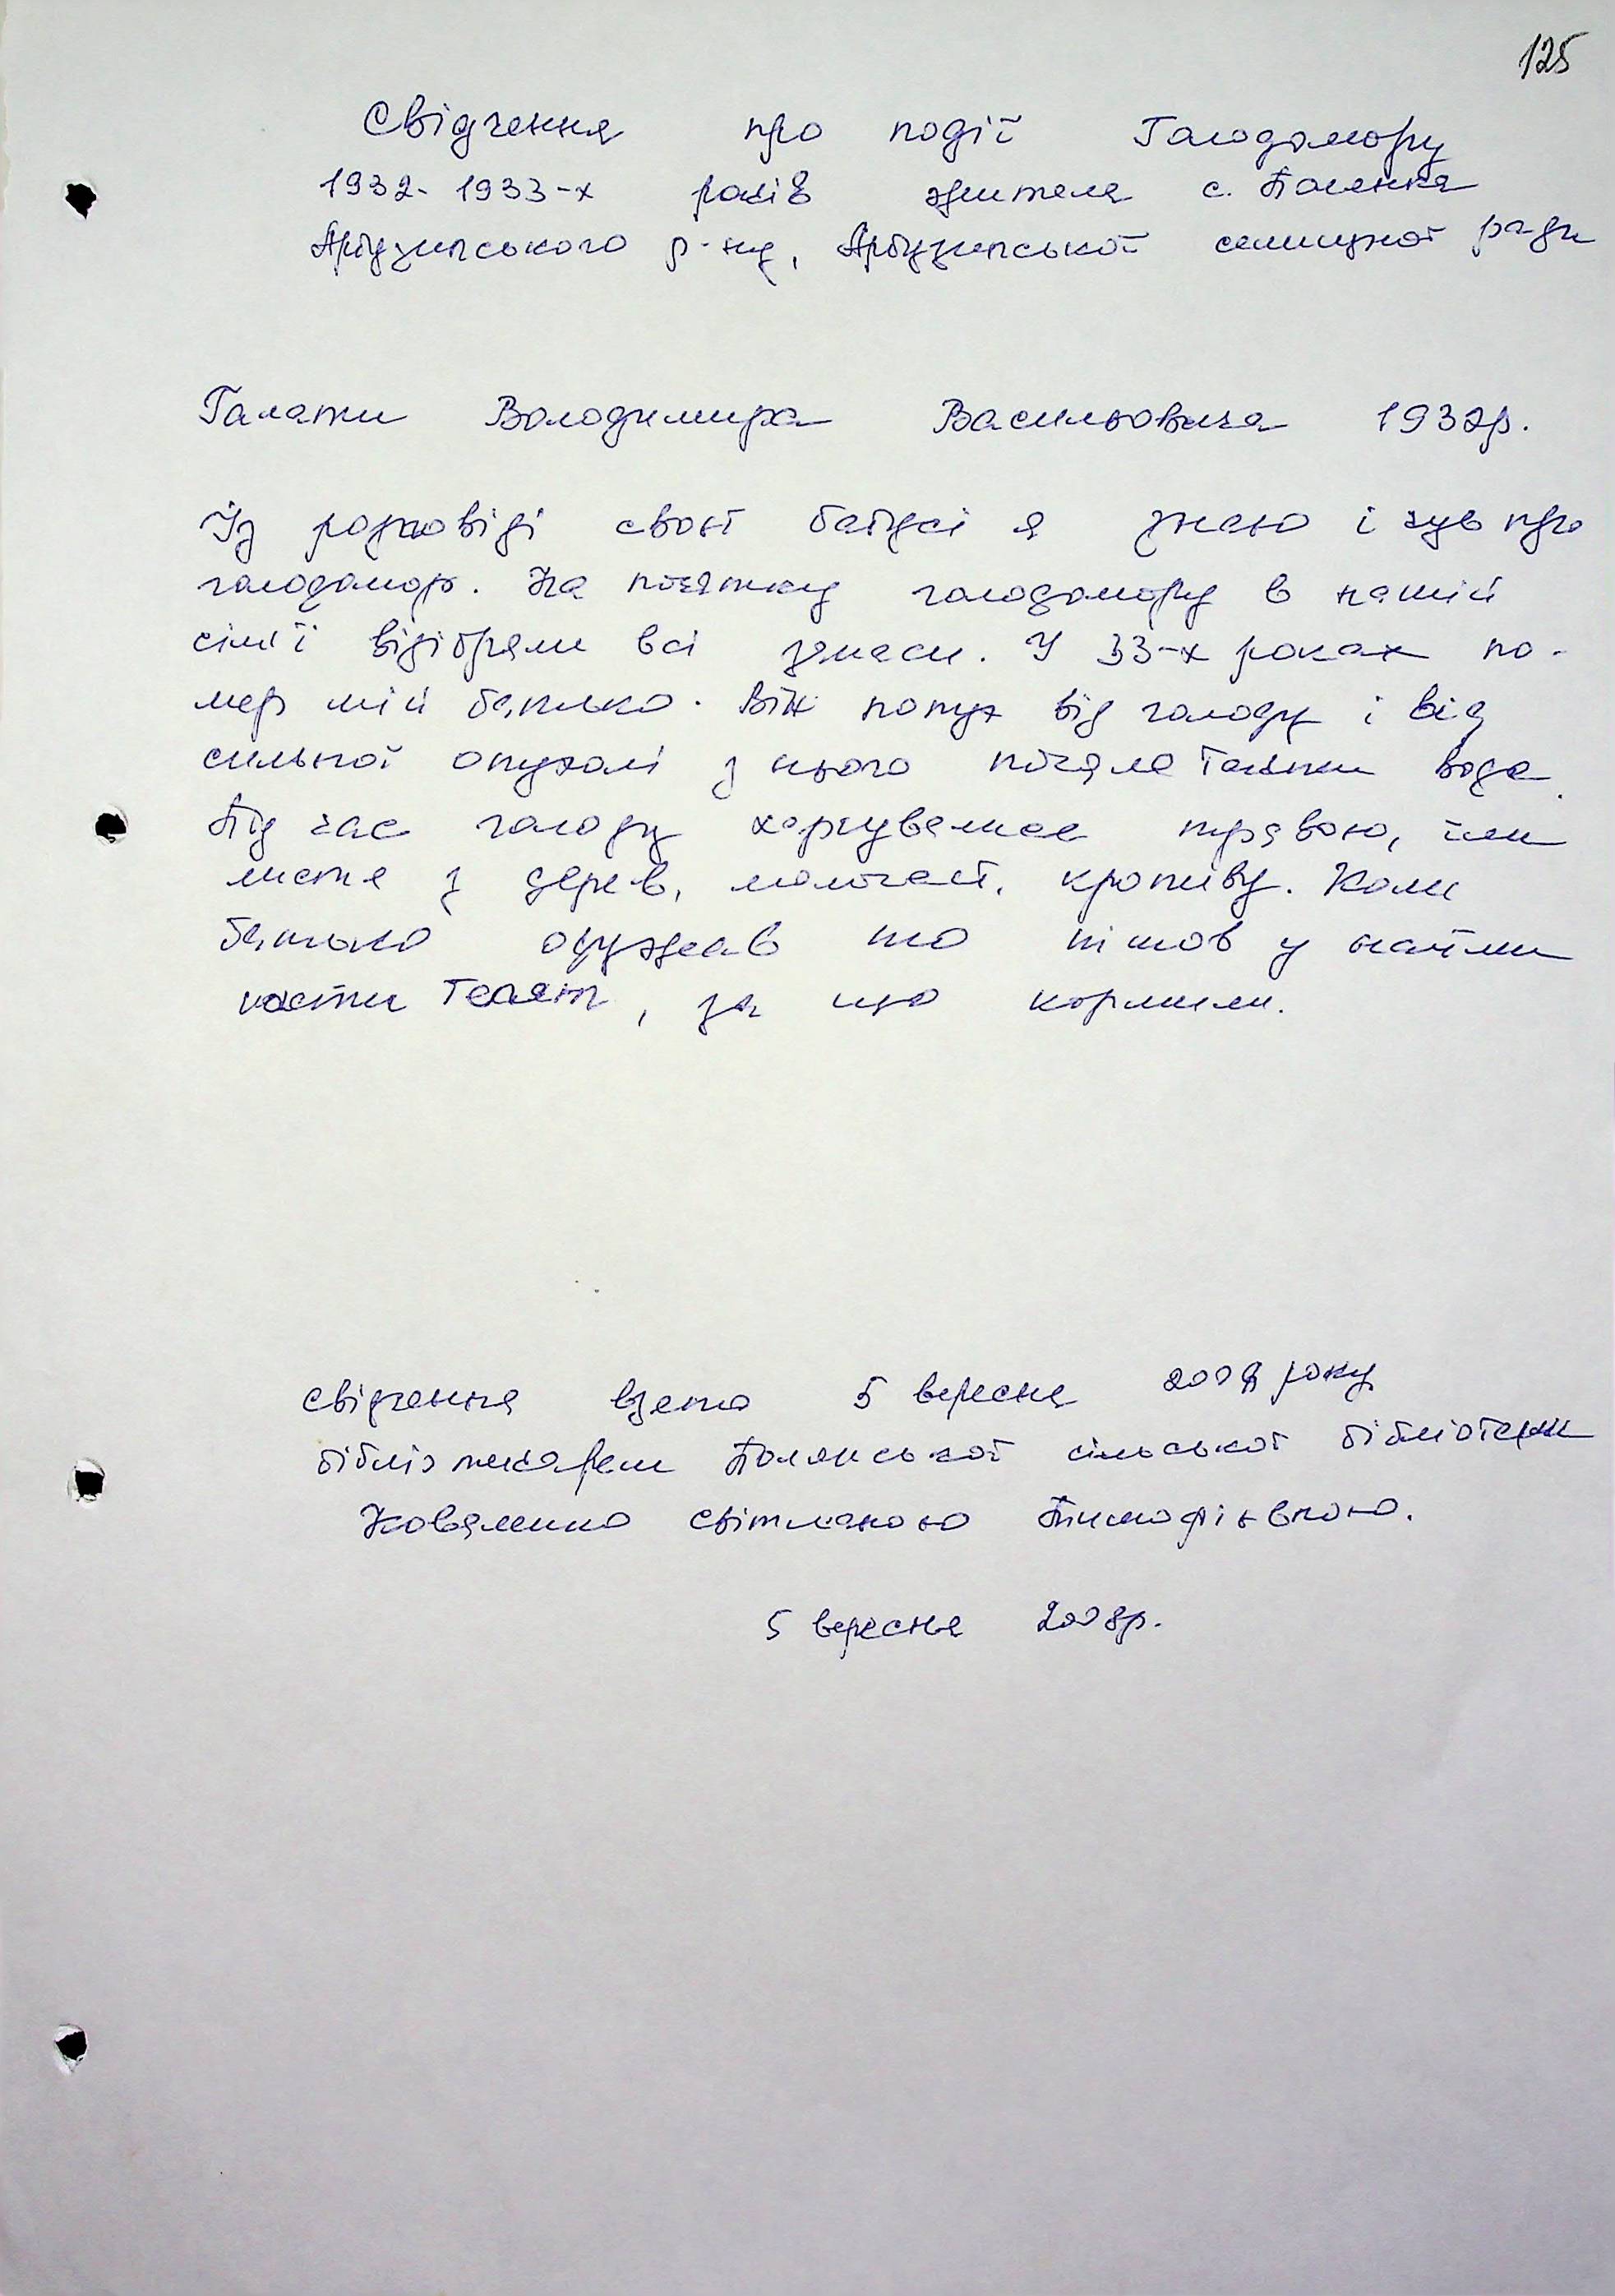 125
Свідчення про події Голодомору
1932-1933-х років жителя с. Полянка
Арбузинського р-ну, Арбузинської селищної ради
Галати Володимира Васильовича 1932р.
Із розповіді своєї бабусі я знаю і чув про
голодомор. На початку голодомору в нашій
сім'ї відібрали всі запаси. У 33-х роках по-
мер мій батько. Він попух від голоду і від
сильної опухолі з нього почала текти вода.
Під час голоду харчувалися травою, їли
листя з дерев, молочай, кропиву. Коли
батько одужав то пішов у найми
пасти телят, за що кормили.
Свідчення взято 5 вересня 2008 року
бібліотекарем Полянської сільської бібліотеки
Коваленко Світланою Тимофіївною.
5 вересня 2008р.